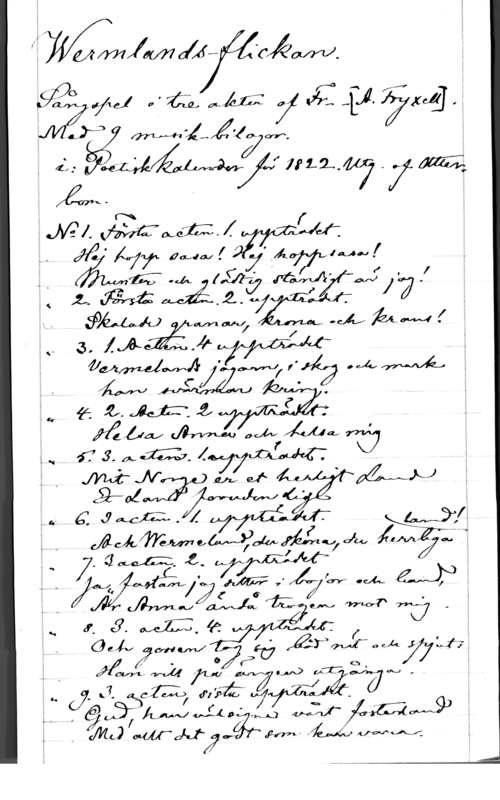 Wermlands-flickan.
Sångspel i tre akter af Fr- [A. Fryxell].
Med 9 musik-bilagor.
i: Poetisk kalender för 1822. Utg. af Atter-
bom.
No 1. Första acten. 1. uppträdet.
Hej hopp sasa! Hej hopp sasa!
Munter och glädtig ständigt är jag!
" 2. Första acten. 2. uppträdet.
Skalade granar, krona och krans!
" 3. 1. Acten. 4 uppträdet
Vermelands jägarn, i skog och mark
han svärmar kring.
" 4. 2. Acten. 2 uppträdet:
Helsa Anna och helsa mig
" 5. 3. acten. 1. uppträdet.
Mit Norge er et herligt Land
Et Land foruden Lige
" 6. 3 acten. 1. uppträdet.
Ack Wermeland, du sköna, du herrliga land!
" 7. 3 acten, 2. uppträdet
Ja, fastän jag sitter i bojor och band,
Är Anna ändå trogen mot mig.
" 8. 3. acten. 4. uppträdet.
Och gossen tog sig båd nät och spjut:
Han vill på ängen utgånga.
" 9. 3. acten, sista uppträdet.
Gud, han välsigne vårt fosterland
Med allt det godt som kan vara.